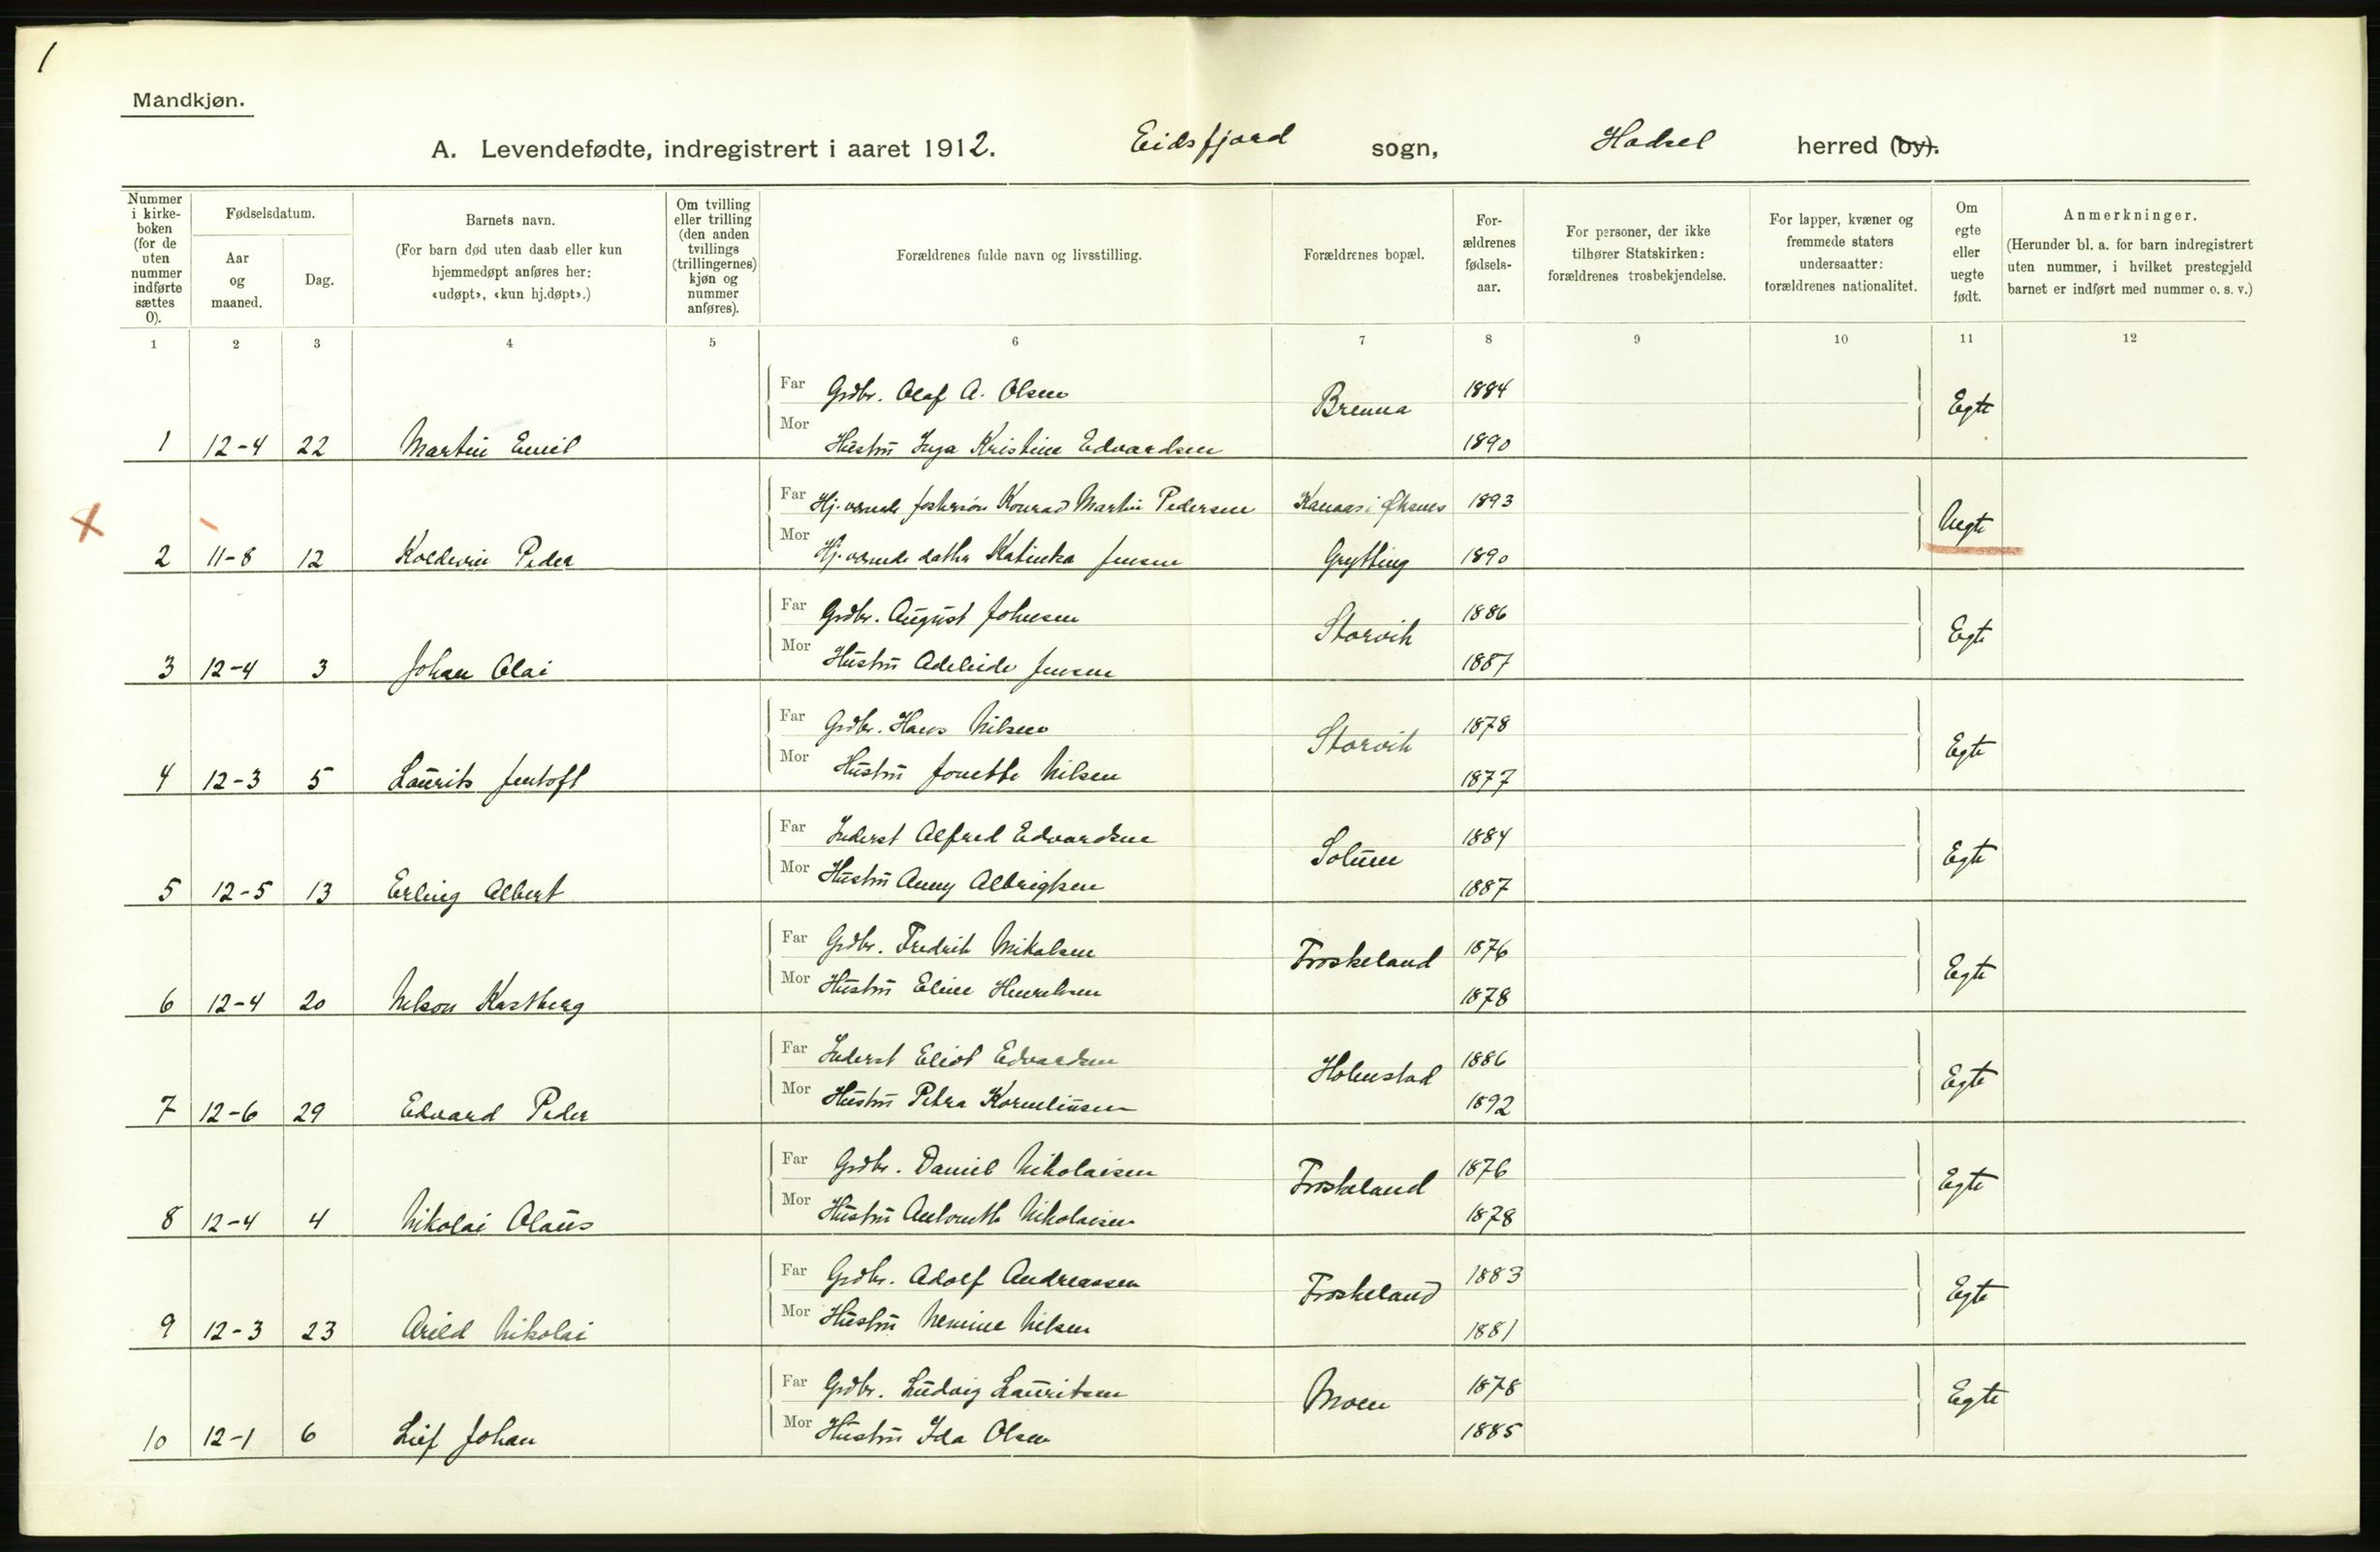 1
Mandkjøn.
A. Levendefødte, indregistrert i aaret 1912. Eidsfjord sogn, Hadsel herred (by).
Nummer i kirkeboken (for de uten nummer indførte sættes 0).
Fødselsdatum.
Aar og maaned.
Dag.
Barnets navn.
(For barn død uten daab eller kun hjemmedøpt anføres her: «udøpt», «kun hj.døpt».)
Om tvilling eller trilling (den anden tvillings (trillingernes) kjøn og nummer anføres).
Forældrenes fulde navn og livsstilling.
Forældrenes bopæl.
Forældrenes fødselsaar.
For personer, der ikke tilhører Statskirken: forældrenes trosbekjendelse.
For lapper, kvæner og fremmede staters undersaatter: forældrenes nationalitet.
Om egte eller uegte født.
Anmerkninger.
(Herunder bl. a. for barn indregistrert uten nummer, i hvilket prestegjeld barnet er indført med nummer o. s. v.)
1 2 3 4 5 6 7 8 9 10 11 12
Far Grdbr. Olaf A. Olsen Brenna 1884 Egte
Mor Hustru Inga Kristine Edvardsen 1890
1 12-4 22 Martin Emil
Far Hj. værende fostersøn Konrad Martin Pedersen i Øksnes 1893 Uegte
Mor Hj. værende datter Katinka Jensen Grytting 1890
X 2 11-8 12 Koldevin Peder
Far Grdbr. August Johnsen Storvik 1886 Egte
Mor Hustru Adeleide Jensen 1887
3 12-4 3 Johan Olai
Far Grdbr. Hans Nilsen Storvik 1878 Egte
Mor Hustru Jonette Nilsen 1877
4 12-3 5 Laurits Jentoft
Far Inderst Alfred Edvardsen Solum 1884 Egte
Mor Hustru Anny Albrigtsen 1887
5 12-5 13 Erling Albert
Far Grdbr. Fredrik Mikalsen Froskeland 1876 Egte
Mor Hustru Eline Henriksen 1878
6 12-4 20 Nelson Kastberg
Far Inderst Eliot Edvardsen Holmstad 1886 Egte
Mor Hustru Petra Korneliusen 1892
7 12-6 29 Edvard Peder
Far Grdbr. Daniel Nikolaisen Froskeland 1876 Egte
Mor Hustru Antonette Nikolaisen 1878
8 12-4 4 Nikolai Olaus
Far Grdbr. Adolf Andreassen Froskeland 1883 Egte
Mor Hustru Nilsen 1881
9 12-3 23 Arild Nikolai
Far Grdbr. Ludvig Lauritsen Moen 1878 Egte
Mor Hustru Ida Olsen 1885
10 12-1 6 Leif Johan